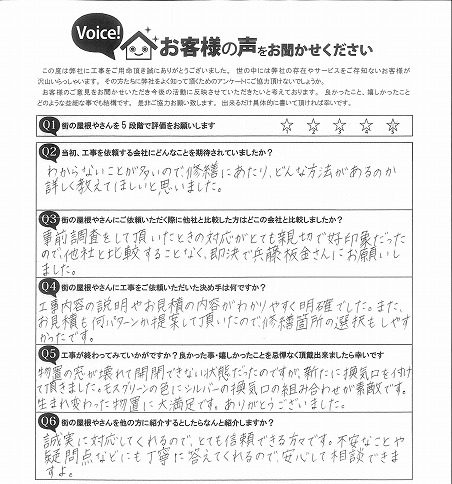 Voice!
お客様の声をお聞かせください
この度は弊社に工事をご用命頂き誠にありがとうございました。世の中には弊社の存在やサービスをご存知ないお客様が
沢山いらっしゃいます。その方たちに弊社をよく知って頂くためのアンケートにご協力頂けないでしょうか。
お客様のご意見をお聞かせいただき今後の活動に反映させていただきたいと考えております。良かったこと、嬉しかったこと
どのような些細な事でも結構です。是非ご協力お願い致します。出来るだけ具体的に書いて頂ければ幸いです。
Q1 街の屋根やさんを5段階で評価をお願いします 1 2 3 4 5
Q2 当初、工事を依頼する会社にどんなことを期待されていましたか?
わからないことが多いので、修繕にあたり、どんな方法があるのか
詳しく教えてほしいと思いました。
Q3 街の屋根やさんにご依頼いただく際に他社と比較した方はどこの会社と比較しましたか?
事前調査をして頂いたときの対応がとても親切で好印象だった
ので、他社と比較することなく、即決で兵藤板金さんにお願いし
ました。
Q4 街の屋根やさんに工事をご依頼いただいた決め手は何ですか?
工事内容の説明やお見積の内容がわかりやすく明確でした。また、
お見積も何パターンか提案して頂いたので、修繕箇所の選択もしやす
かったです。
Q5 工事が終わってみていかがですか?良かった事・嬉しかったことを忌憚なく頂戴出来ましたら幸いです
物置の窓が壊れて開閉できない状態だったのですが、新たに換気口を付け
て頂きました。モスグリーンの色にシルバーの換気口の組み合わせが素敵です。
生まれ変わった物置に大満足です。ありがとうございました。
Q6 街の屋根やさんを他の方に紹介するとしたらなんと紹介しますか?
誠実に対応してくれるので、とても信頼できる方々です。不安なことや
疑問点などにも丁寧に答えてくれるので、安心して相談できま
すよ。